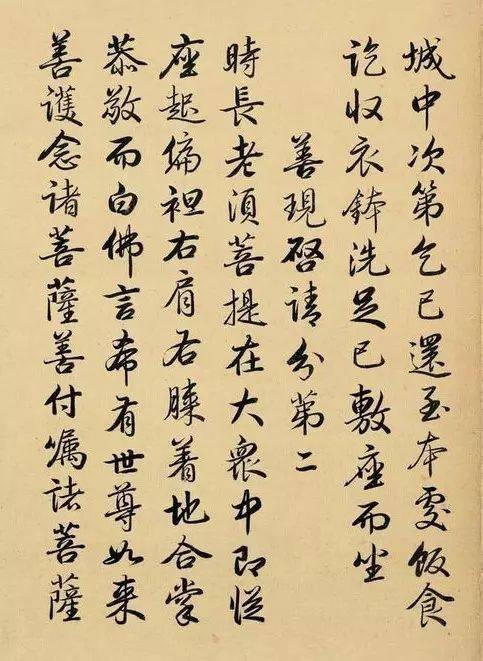 城中次第乞已還至本處飯食
訖收衣鉢洗足已敷座而坐
善現啓請分第二
時長老須菩提在大眾中即從
座起偏袒右肩右膝着地合掌
恭敬而白佛言希有世尊如来
善護念諸菩薩善付囑諸菩薩